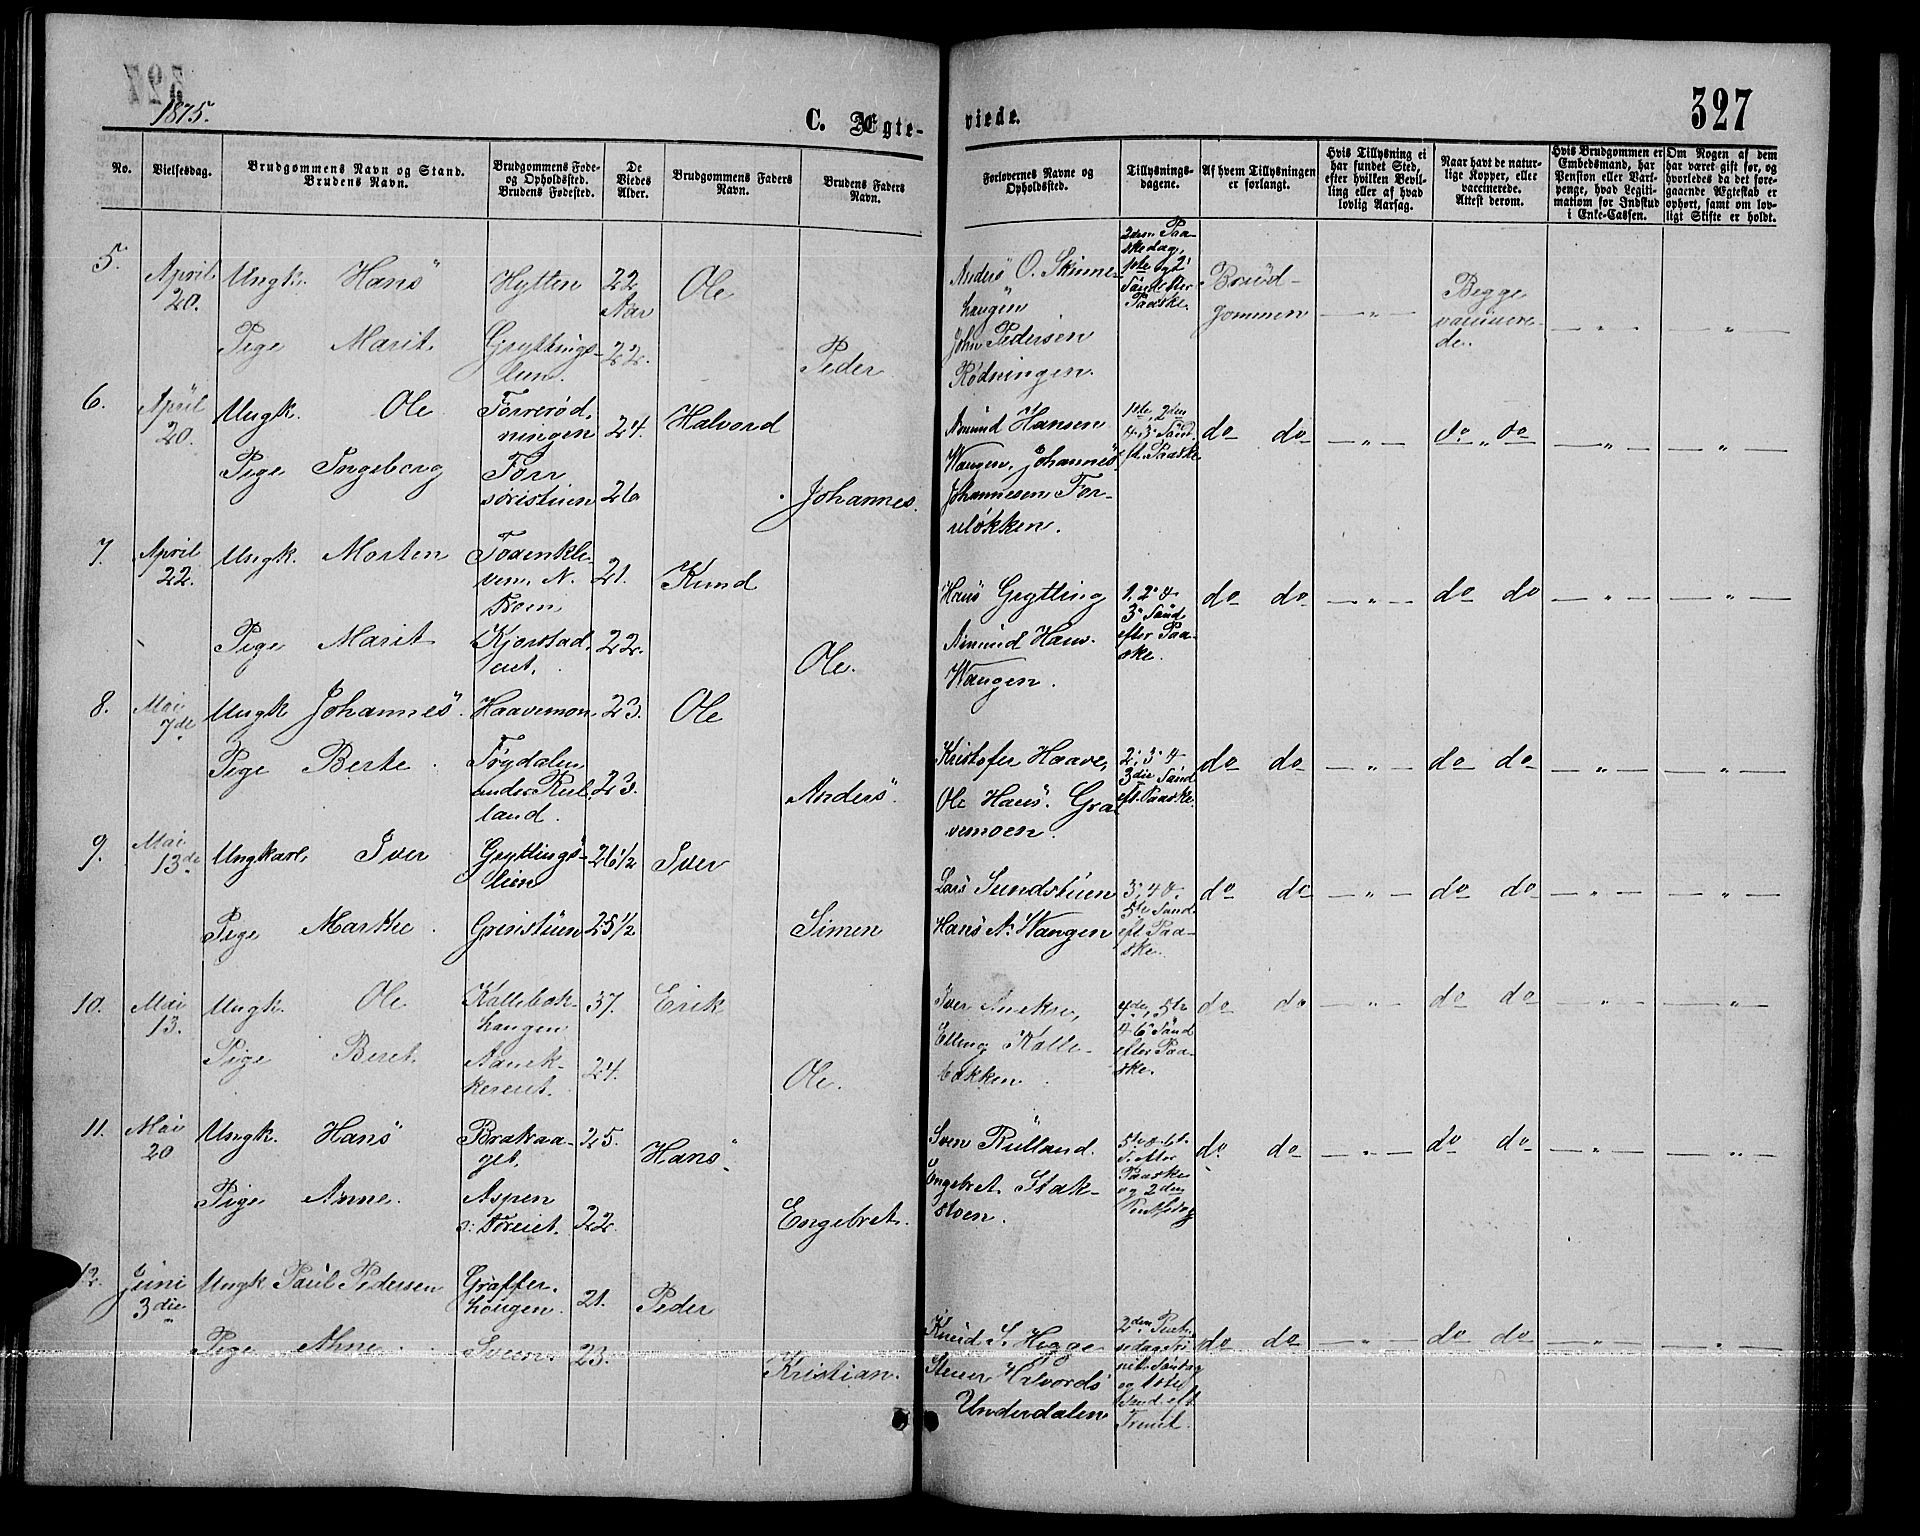 1875.
C. Ægte-
viede.
327
No.
Vielsesdag.
Brudgommens Navn og Stand.
Brudens Navn.
Brudgommens Føde-
og Opholdssted.
Brudens Fødested.
De
Viedes
Alder.
Brudgommens Faders
Navn.
Brudens Faders
Navn.
Forlovernes Navne og
Opholdssted.
Tillysnings-
dagene.
Af hvem Tillysningen
er forlangt.
Hvis Tillysning ei
har fundet Sted,
efter hvilken Bevil-
ling eller af hvad
lovlig Aarsag.
Naar havt de natur-
lige Kopper, eller
vaccinerede.
Attest derom.
Hvis Brudgommen er
Embedsmand, har
Pension eller Vart-
penge, hvad Legiti-
mation for Indskud
i Enke-Cassen.
Om Nogen af dem
har været gift før, og
hvorledes da det fore-
gaaende Ægteskab er
ophørt, samt om lov-
ligt Skifte er holdt.
5.
April
20.
Ungk. Hans
Hytten
22
Aar
Ole
Pige Marit
Gryttings-
lien.
22.
Peder
Anders O. Skinne-
haugen
John Pedersen
Rødningen.
2den Paa-
skedag,
1ste og 2'
Sand. efter
Paaske.
Brud-
gommen
— „ —
Begge
vaccinere-
de.
— „ —
— „ —
6.
April
20.
Ungk. Ole
Forrerød-
ningen
24.
Halvord
Pige Ingeborg
Forr
26
Johannes.
Amund Hansen
Wangen, Johannes
Johannesen For-
reløkken.
1ste, 2den
& 3' Sønd.
eft. Paaske
do do
— „ —
do „ do
— „ —
— „ —
7.
April
22.
Ungk. Morten
N.
Froen
21.
Knud
Pige Marit
Kjorstad-
eiet.
22.
Ole.
Hans Grytting
Amund Hans.
Wangen.
1, 2' &
3' Sønd.
efter Paa-
ske.
do do
— „ —
do do
— „ —
— „ —
8.
Mai
7de
Ungk Johannes.
Haavemon.
23.
Ole
Pige Berte.
Frydalen
under Rul-
land.
23.
Anders.
Kristofer Haave,
Ole Hans. Gra
vemoen.
2', 3' &
3die Sønd
eft. Paaske.
do do
— „ —
do do
— „ —
— „ —
9.
Mai
13de
Ungkarl, Iver
Gryttings-
lien
26 1/2
Iver
Pige Marthe.
Gristuen
25 1/2
Simen
Lars Sundstuen
Hans A. Wangen
3', 4 &
5te Sønd.
eft. Paa-
ske.
do do
— „ —
do do
— „ —
— „ —
10.
Mai
13.
Ungk. Ole
Kollebak-
haugen
37.
Erik
Pige Beret
24.
Ole.
Iver Anekre,
Elling Kolle-
bakken.
4de, 5te
& 6' Sønd
efter Paa-
ske.
do do
— „ —
do do
— „ —
— „ —
11.
Mai
20
Ungk. Hans
Brakaa-
get.
25.
Hans
Pige Anne.
Aspen
22.
Engebret.
Sven Rulland.
Engebret Stak-
stoen.
5te & 6te
S. efter
Paaske
og 2den
do do
— „ —
do do
— „ —
— „ —
12.
Juni
3die
Ungk Paul Pedersen
Graffer-
hougen.
21.
Peder
Pige Anne.
Sveen.
23.
Kristian.
Knud S. Hygge
Stener Halvords
Underdalen
2den Pint-
sedag, Tri-
nit. Søndag
og 1ste
Sønd. eft
Trinit.
do do
— „ —
do do
— „ —
— „ —